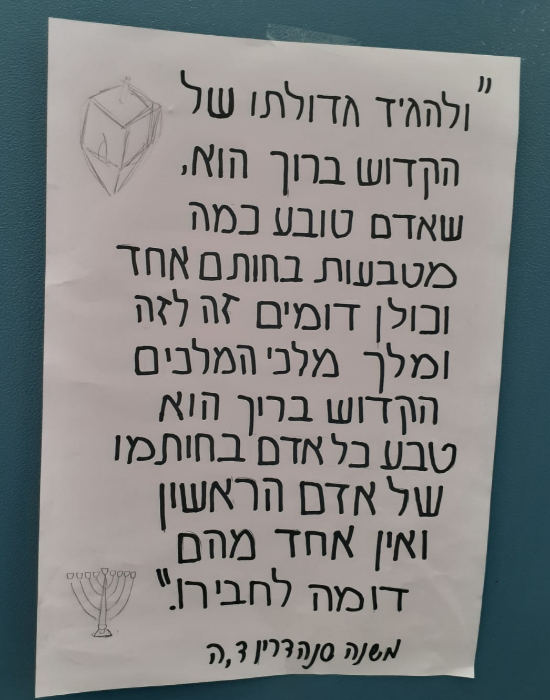 "ולהגיד גדולתו של
הקדוש ברוך הוא,
שאדם טובע כמה
מטבעות בחותם אחד
וכולן דומים זה לזה
ומלך מלכי המלכים
הקדוש בריך הוא
טבע כל אדם בחותמו
של אדם הראשון
ואין אחד מהם
דומה לחבירו."
משנה סנהדרין ד,ה